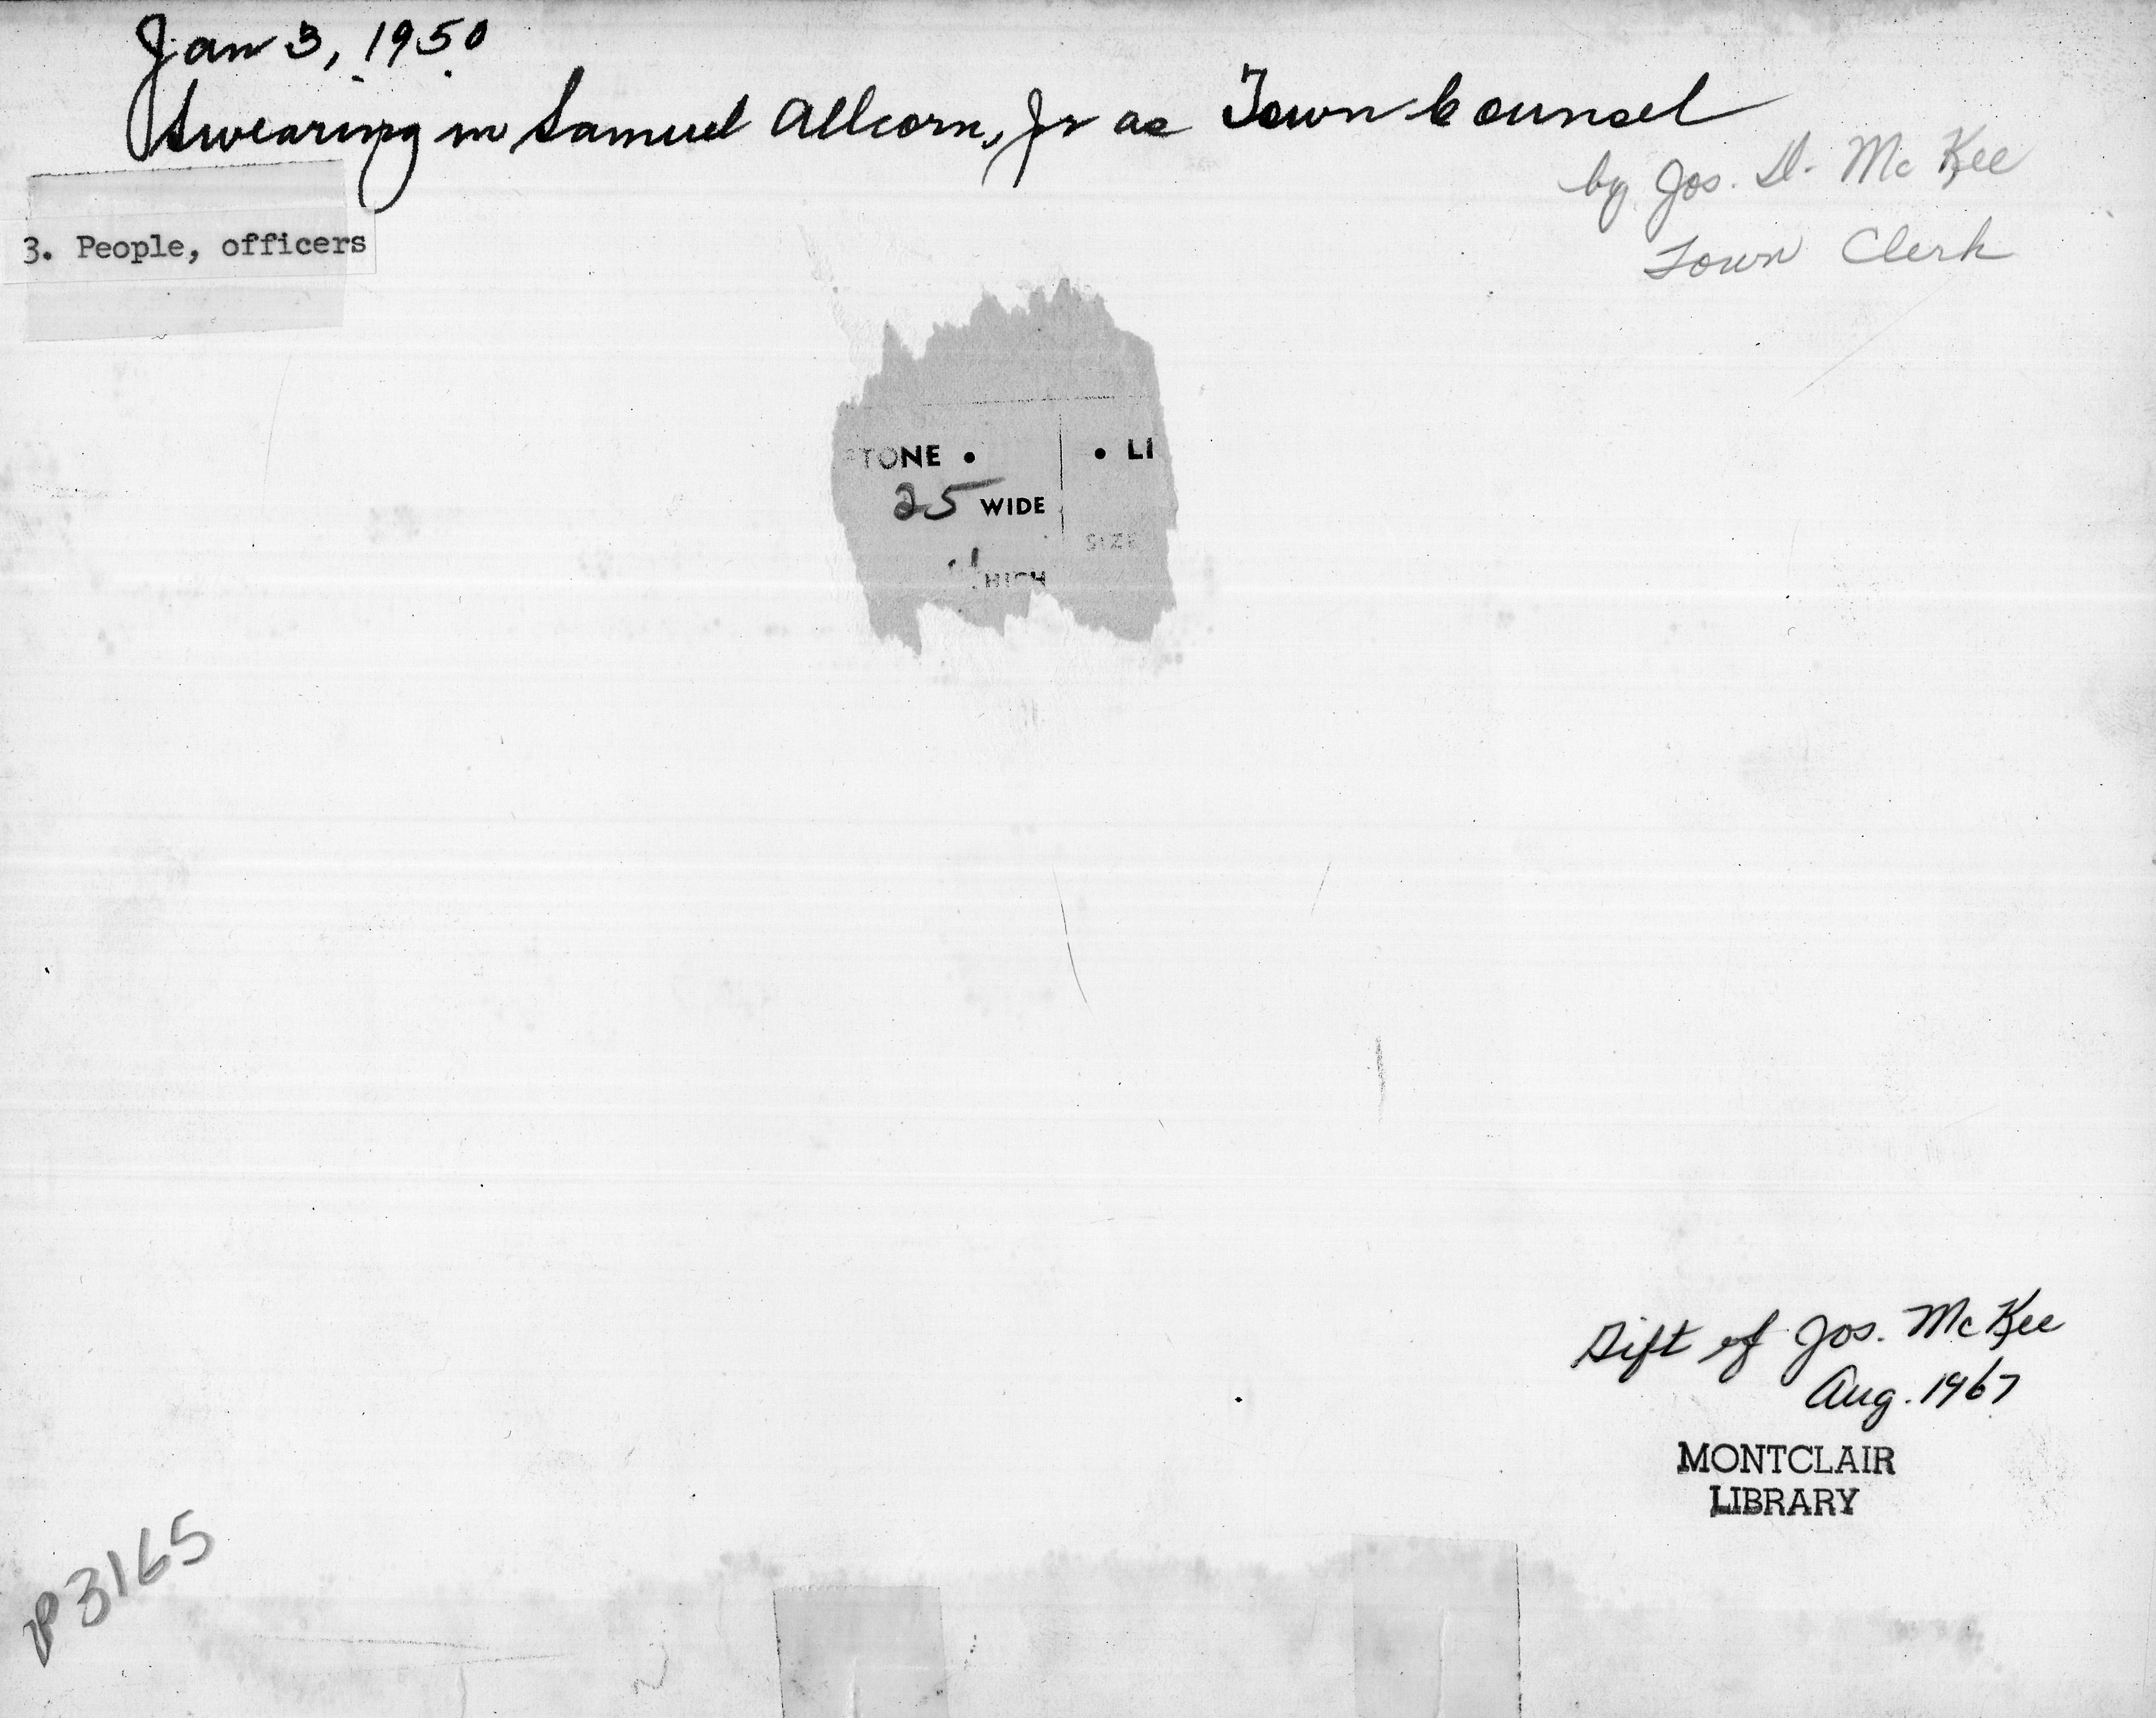 Jan 3, 1950
Swearing in Samuel Allcorn, Jr as Town Counsel
by Jos. D. McKee
Town Clerk
3. People, officers
TONE • • LI
25 WIDE
SIZE
HIGH
Gift of Jos. McKee
Aug. 1967
MONTCLAIR
LIBRARY
P3165